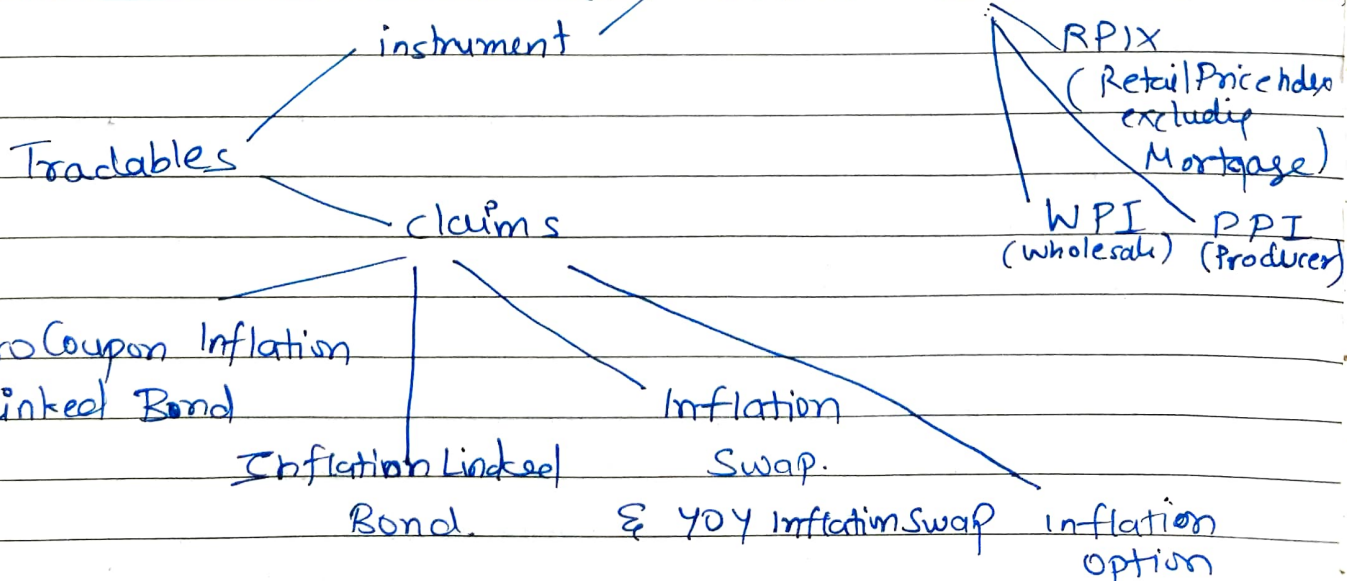 instrument
RPIX
( Retail Price Index
excludig
Mortgage)
Tradables
claims
WPI PPI
(wholesale) (Producer)
ro Coupon Inflation
inked Bond
Inflation
Inflation Lincked
Swap.
Bond.
& YOY Inflation Swap
inflation
option